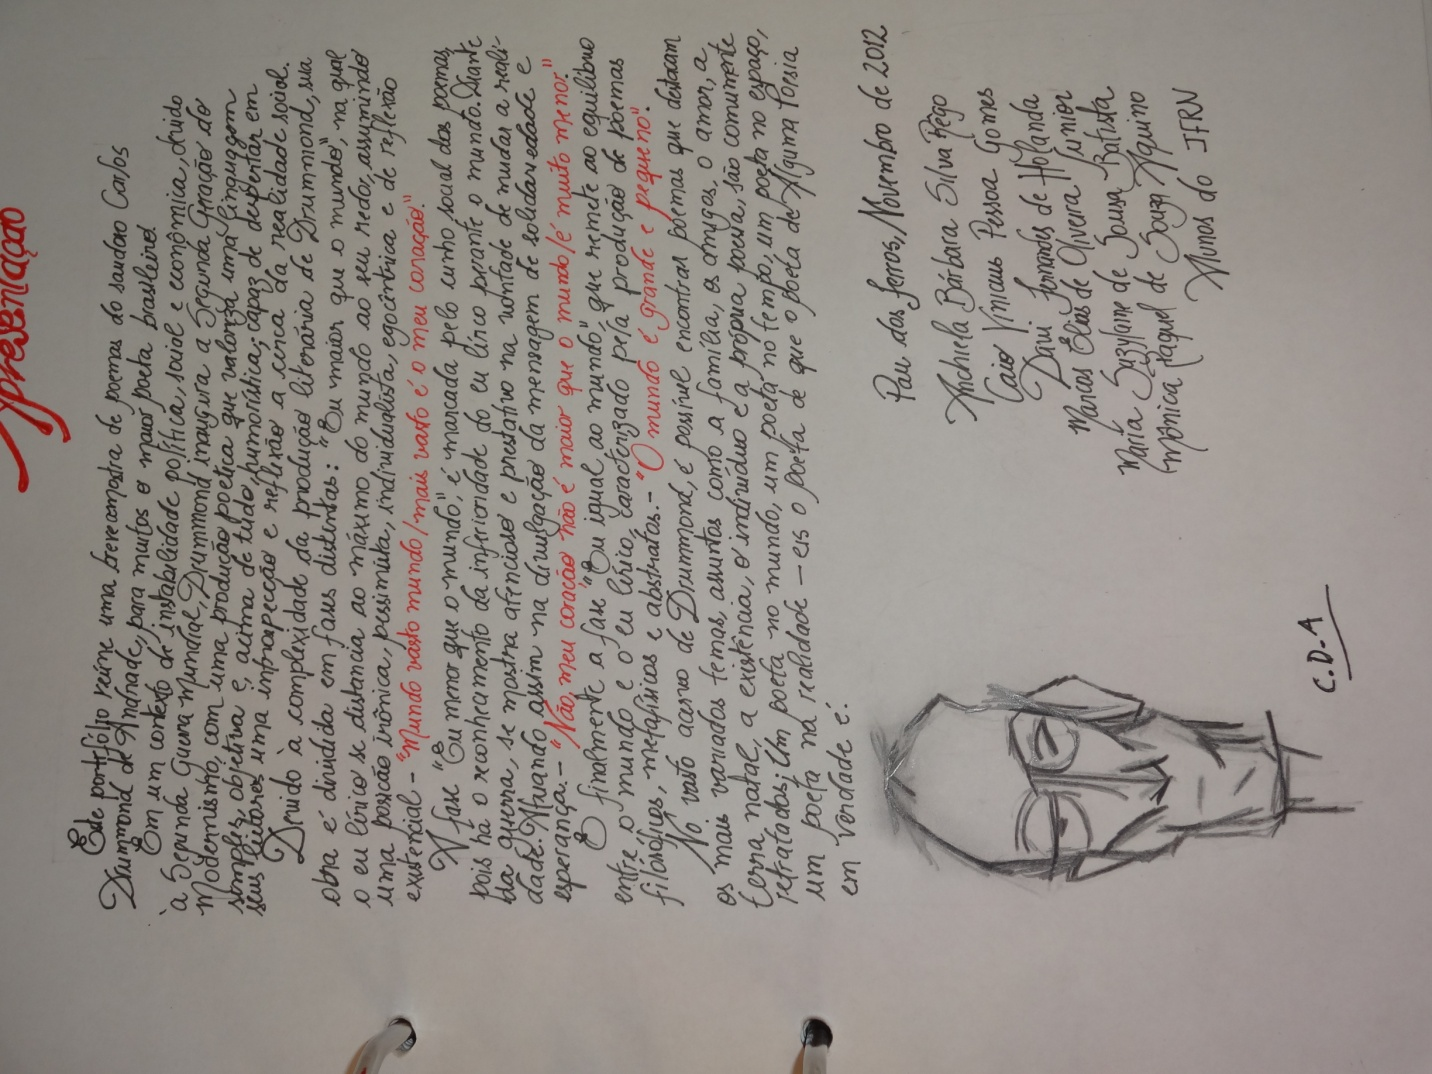 Apresentação
Este portfólio reúne uma breve amostra de poemas do saudoso Carlos
Drummond de Andrade, para muitos o maior poeta brasileiro.
Em um contexto de instabilidade política, social e econômica, devido
à Segunda Guerra Mundial, Drummond inaugura a Segunda Geração do
Modernismo, com uma produção poética que valoriza uma linguagem
simples, objetiva e, acima de tudo, humorística, capaz de despertar em
seus leitores uma introspecção e reflexão a cerca da realidade social.
Devido à complexidade da produção literária de Drummond, sua
obra é dividida em fases distintas: "Eu maior que o mundo", na qual
o eu lírico se distancia ao máximo do mundo ao seu redor, assumindo
uma posição irônica, pessimista, individualista, egocêntrica e de reflexão
existencial - "Mundo vasto mundo/mais vasto é o meu coração".
A fase "Eu menor que o mundo", é marcada pelo cunho social dos poemas,
pois há o reconhecimento da inferioridade do eu lírico perante o mundo. Diante
da guerra, se mostra atencioso e prestativo na vontade de mudar a reali-
dade. Atuando assim na divulgação da mensagem de solidariedade e
esperança. - "Não, meu coração não é maior que o mundo/é muito menor."
E finalmente a fase "Eu igual ao mundo", que remete ao equilíbrio
entre o mundo e o eu lírico, caracterizado pela produção de poemas
filosóficos, metafísicos e abstratos. - "O mundo é grande e pequeno".
No vasto acervo de Drummond, é possível encontrar poemas que destacam
os mais variados temas, assuntos como a família, os amigos, o amor, a
terra natal, a existência, o indivíduo e a própria poesia, são comumente
retratados. Um poeta no mundo, um poeta no tempo, um poeta no espaço,
um poeta na realidade - eis o poeta de que o poeta de Alguma Poesia
em verdade é.
Pau dos Ferros, Novembro de 2012
Anchiela Bárbara Silva Rêgo
Caio Vinicius Pessoa Gomes
Davi Fernandes de Holanda
Marcos Elias de Oliveira Júnior
Maria Suzyanne de Sousa Batista
Mônica Raquel de Souza Aquino
Alunos do IFRN
C.D.A